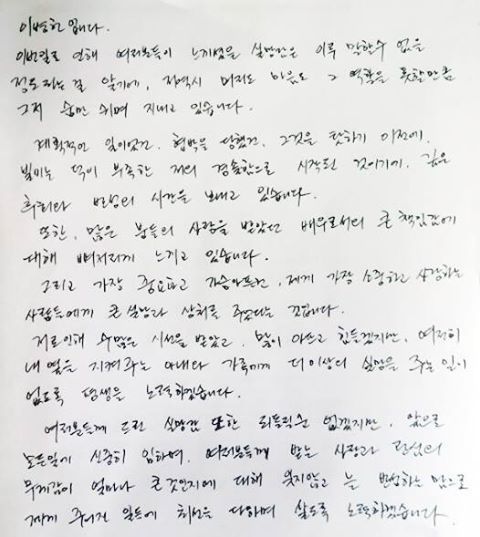 이병헌입니다.
이번일로 인해 여러분들이 느끼셨을 실망감은 이루 말할수 없을
정도라는걸 알기에, 저역시 머리도 마음도 그 역할을 못할만큼
그저 숨만 쉬며 지내고 있습니다.
계획적인 일이었건, 협박을 당했건, 그것을 탓하기 이전에,
빌미는 덕이 부족한 저의 경솔함으로 시작된 것이기에, 깊은
후회와 반성의 시간을 보내고 있습니다.
또한, 많은 분들의 사랑을 받았던 배우로서의 큰 책임감에
대해 뼈저리게 느끼고 있습니다.
그리고 가장 중요하고 가슴아픈건, 제게 가장 소중하고 사랑하는
사람들에게 큰 실망과 상처를 주었다는 것입니다.
저로인해 수많은 시선을 받았고, 많이 아프고 힘든겠지만, 여전히
내 옆을 지켜주는 아내와 가족에게 더이상의 실망을 주는 일이
없도록 평생을 노력하겠습니다.
여러분들께 드린 실망감 또한 되돌릴순 없겠지만, 앞으로
모든일에 신중히 임하며, 여러분들께 받는 사랑과 관심의
무게감이 얼마나 큰것인지에 대해 잊지않고 늘 반성하는 맘으로
제게 주어진 일들에 최선을 다하며 살도록 노력하겠습니다.